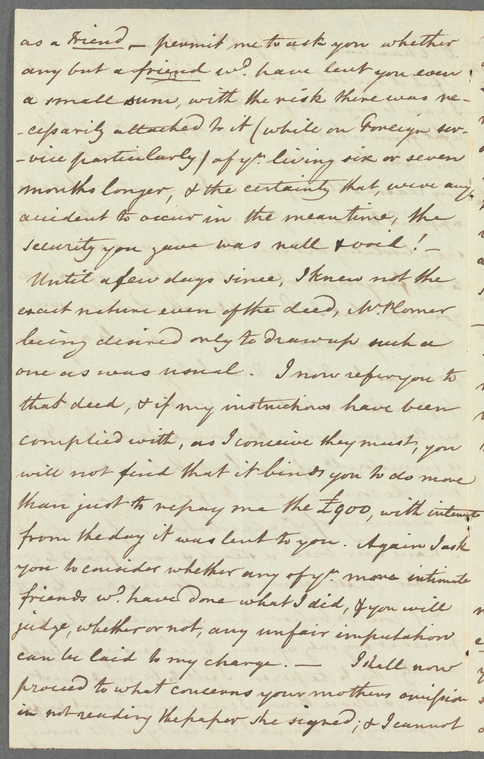 as a Friend — permit me to ask you whether
any but a friend wd. have lent you even
a small sum, with the risk there was ne-
-cessarily attached to it (while on Foreign ser-
-vice particularly) of yr. living six or seven
months longer, & the certainty that, were any
accident to occur in the mean time, the
security you gave was null & void! —
Until a few days since, I knew not the
exact nature even of the deed, Mr. Plomer
being desired only to draw up such a
one as was usual. I now refer you to
that deed, & if my instructions have been
complied with, as I conceive they must, you
will not find that it binds you to do more
than just to repay me the £900, with interest
from the day it was lent to you. Again I ask
you to consider whether any of yr. more intimate
friends wd. have done what I did, & you will
judge, whether or not, any unfair imputation
can be laid to my charge. — I shall now
proceed to what concerns your mothers omission
in not reading the paper she signed; & I cannot